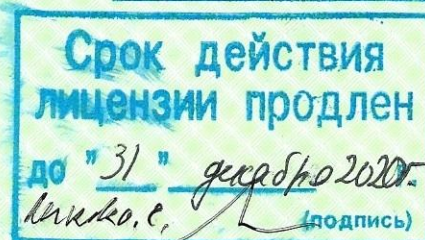 Срок действия
лицензии продлен
до "31" декабря 2020г.
(подпись)